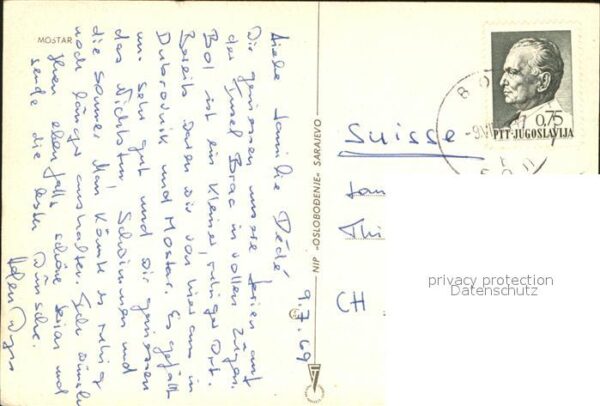 MOSTAR
9.7.69
Liebe Familie Dédé
Wir geniessen unsere Ferien auf
der Insel Brac in vollen Zügen.
Bol ist ein kleiner, ruhiger Ort.
Bereits waren wir von hier aus in
Dubrovnik und Mostar. Es gefällt
uns sehr gut und wir geniessen
das Nichtstun, Schwimmen und
die Sonne. Man könnte es ruhig
noch länger aushalten. Ich wünsche
Ihnen ebenfalls schöne Ferien und
sende die besten Wünsche.
NIP -OSLOBOĐENJE- SARAJEVO
0,75
PTT-JUGOSLAVIJA
Suisse
Fam
Thi
CH
privacy protection
Datenschutz